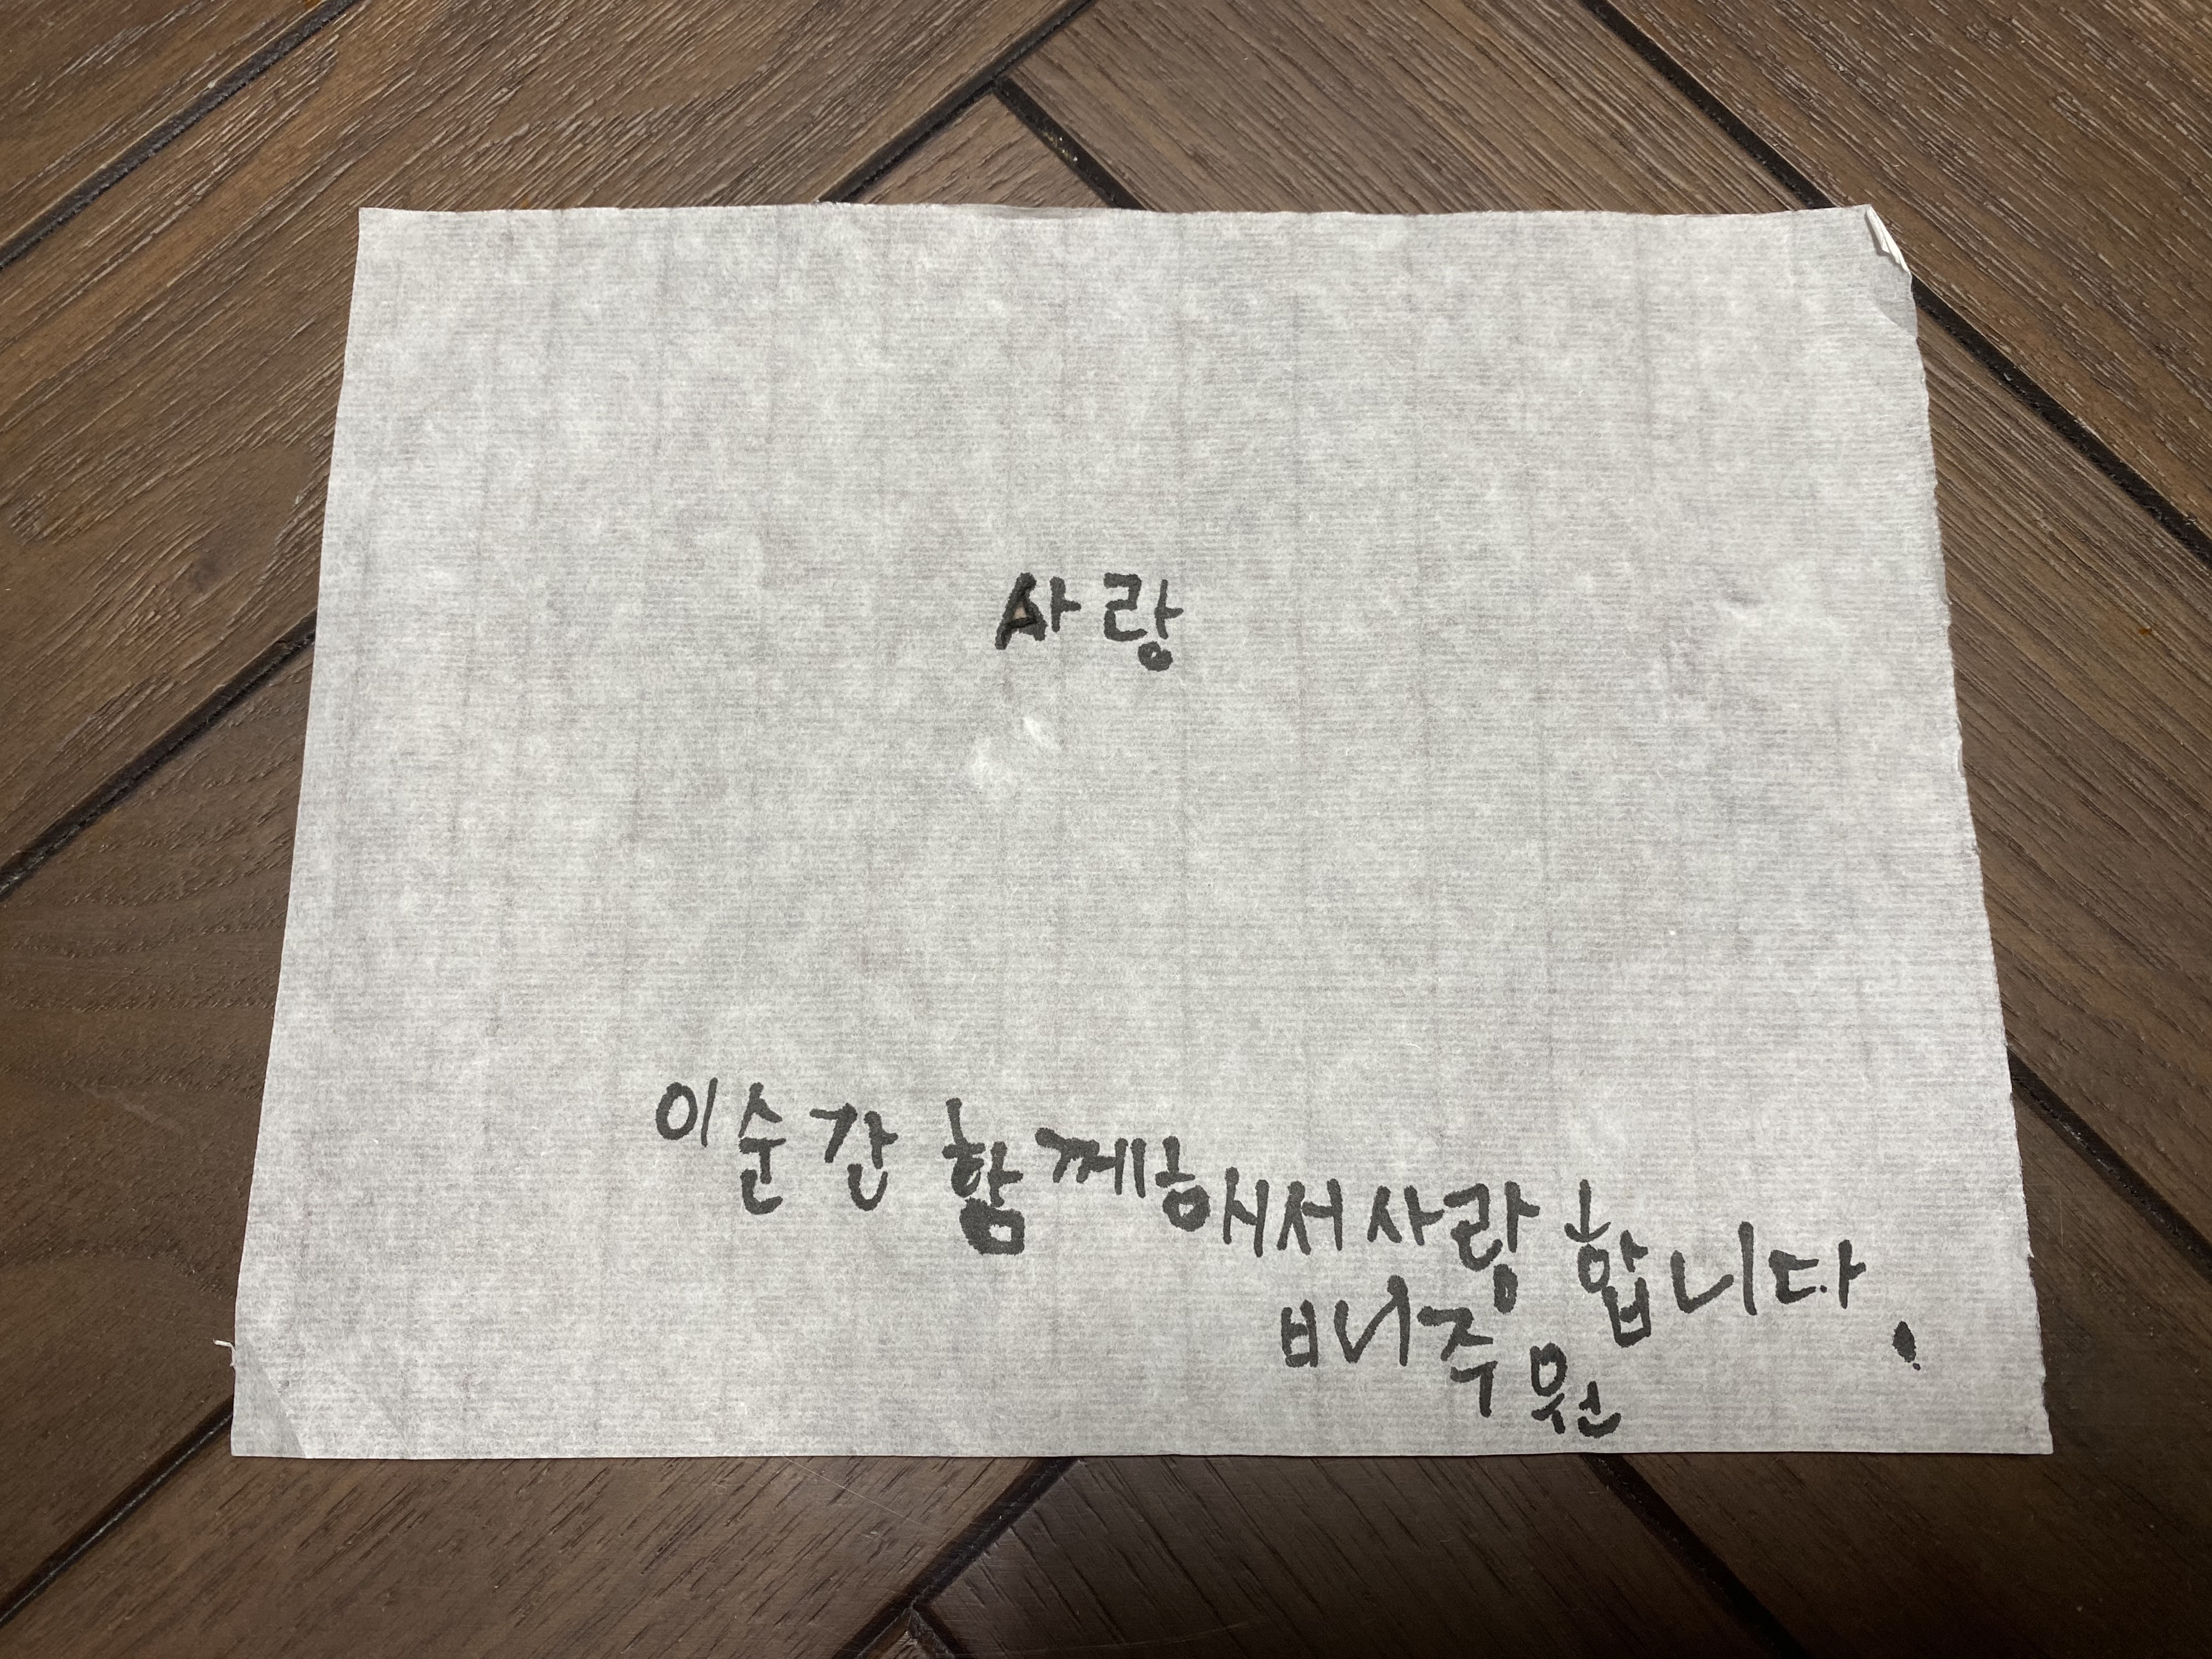 사랑
이순간 함께해서 사랑합니다.
비니주원